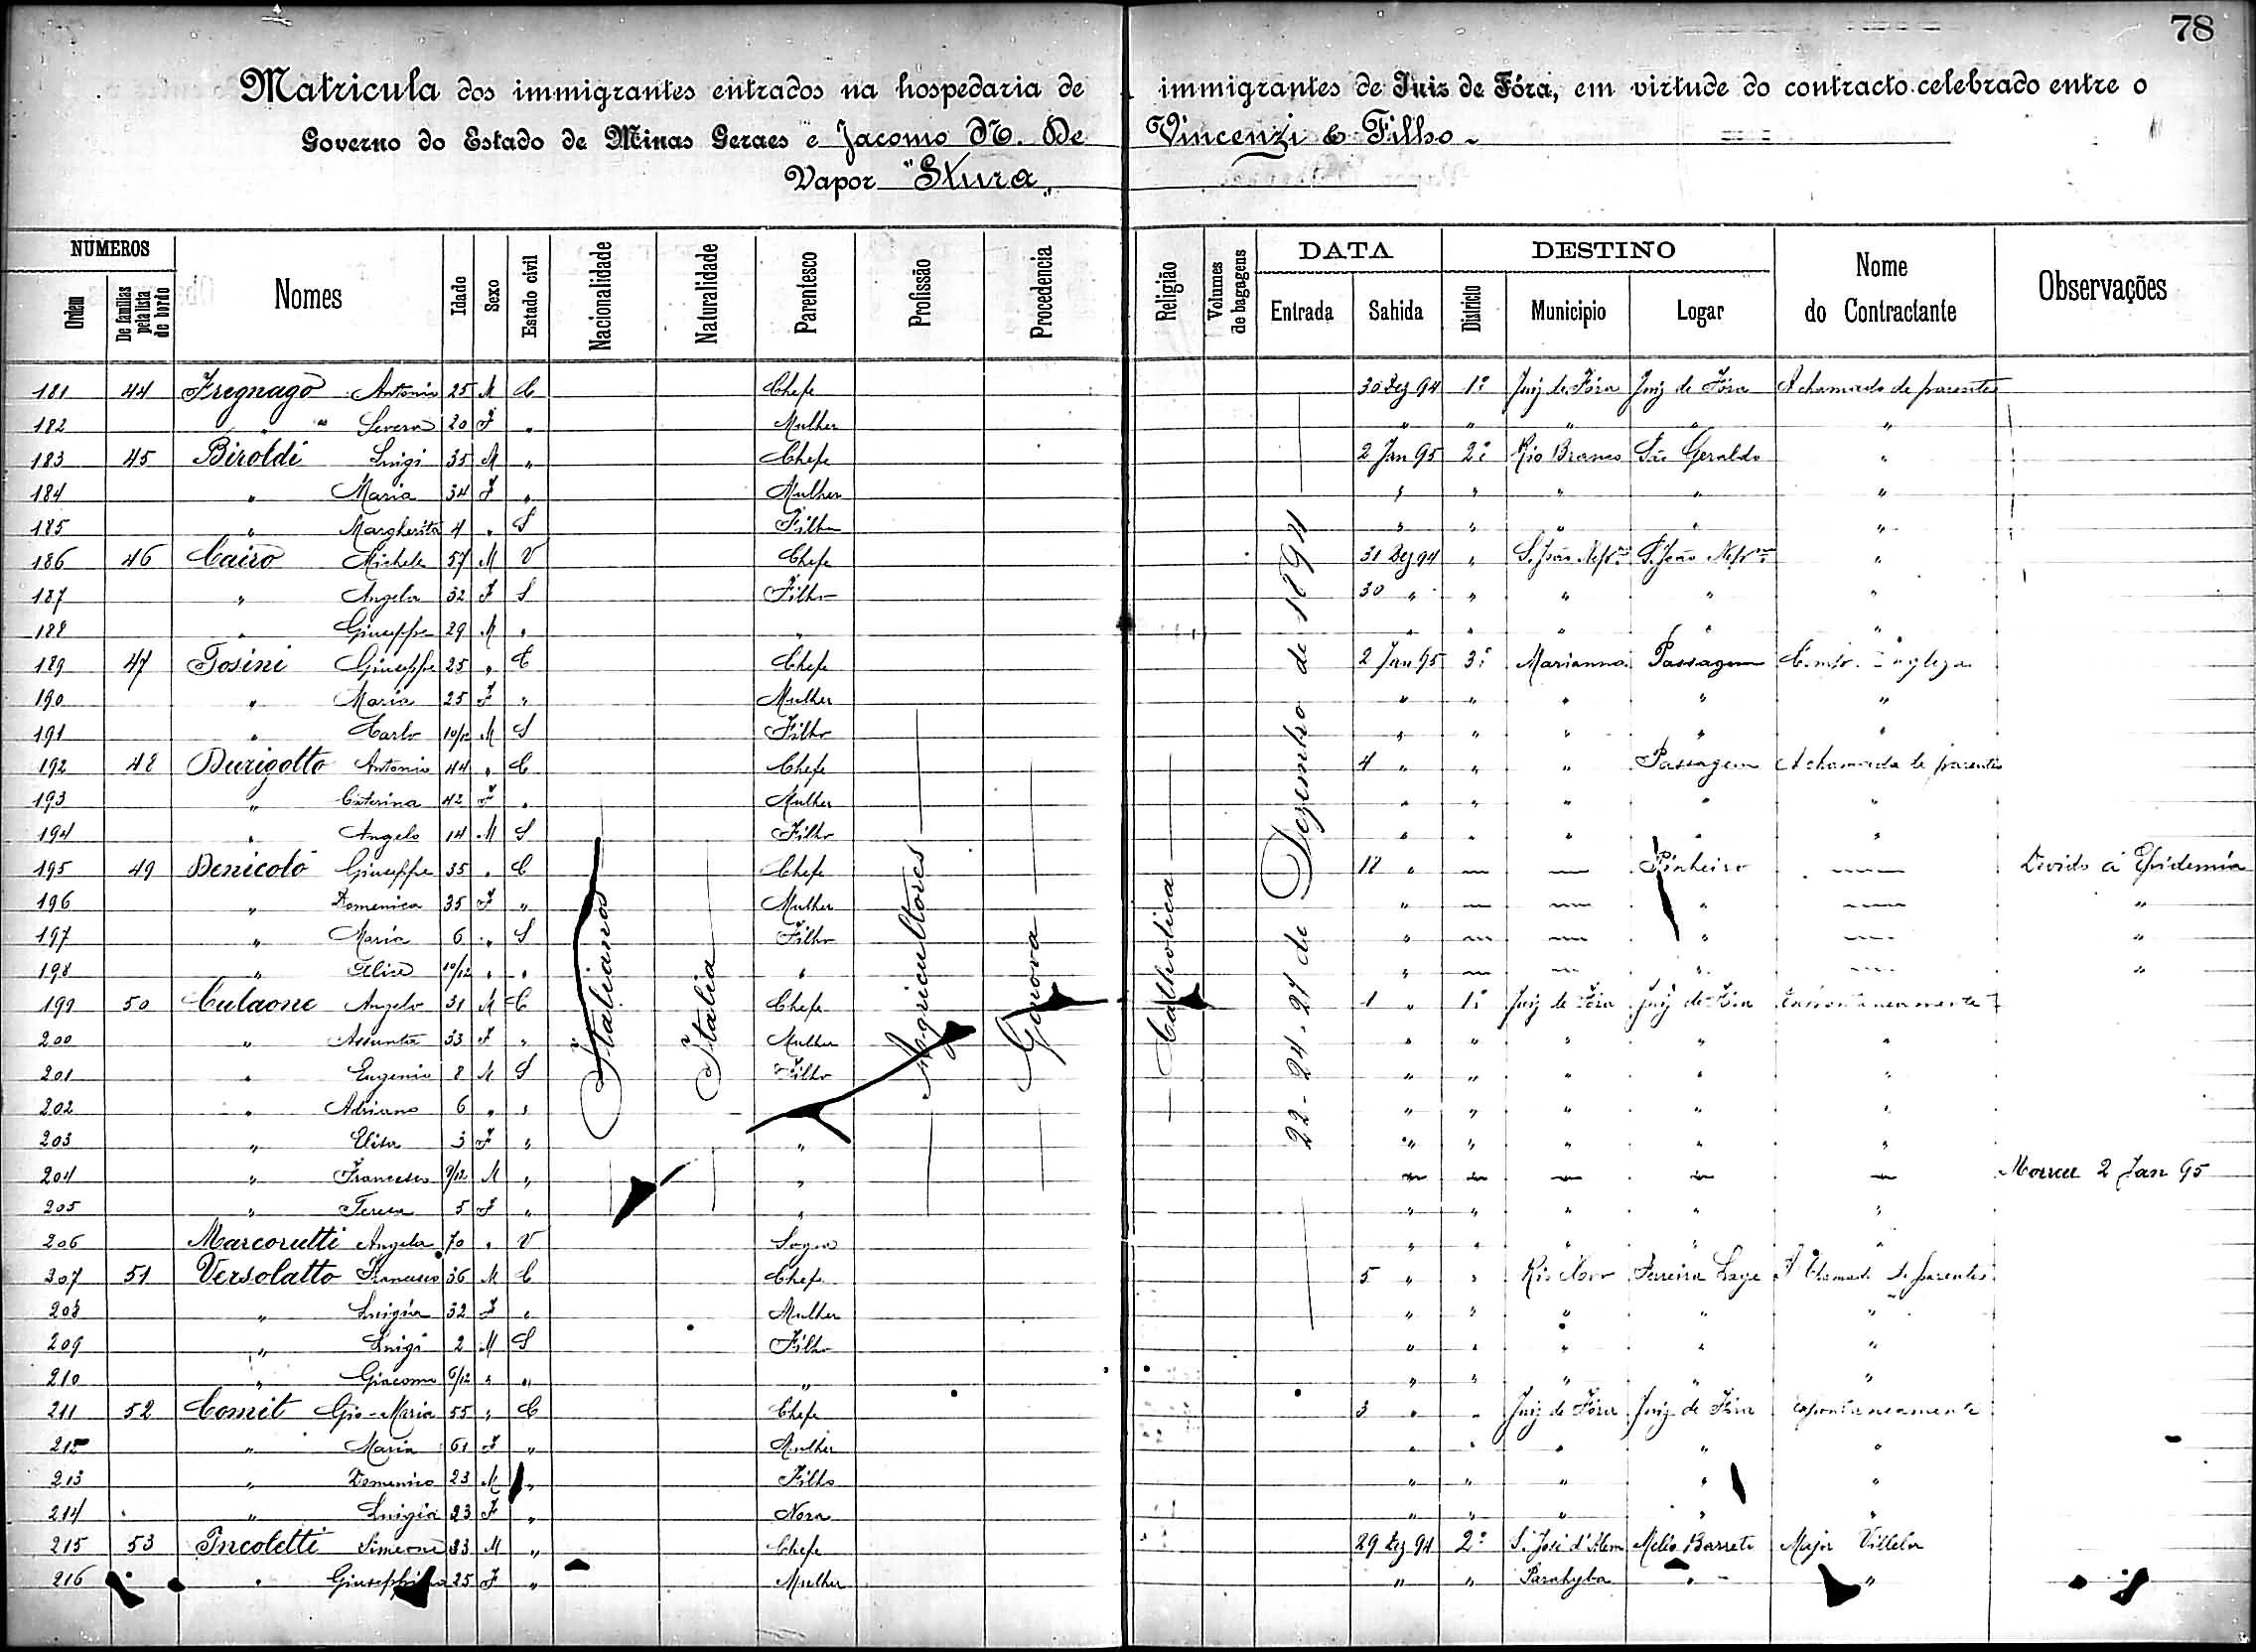 78
Matricula dos immigrantes entrados na hospedaria de immigrantes de Juiz de Fóra, em virtude do contracto celebrado entre o
Governo do Estado de Minas Geraes e Jacomo N. De Vincenzi & Filho
Vapor "Stura"
NUMEROS DATA DESTINO
Ordem De familias pela lista de bordo Nomes Idade Sexo Estado civil Nacionalidade Naturalidade Parentesco Profissão Procedencia Religião Volumes de bagagens Entrada Sahida Districto Municipio Logar Nome do Contractante Observações
Italianos Italia Agricultores Genova Catholica 22-24-27 de Dezembro de 1894
181 44 Fregnago Antonio 25 M C Chefe 30 Dez 94 1º Juiz de Fóra Juiz de Fóra A chamado de parentes
182 " " Severa 20 F " Mulher " " " " "
183 45 Biroldi Luigi 35 M " Chefe 2 Jan 95 2º Rio Branco São Geraldo "
184 " Maria 34 F " Mulher " " " " "
185 " Margherita 4 " S Filha " " " " "
186 46 Cairo Michele 57 M V Chefe 31 Dez 94 " S. João Nepno S. João Nepno "
187 " Angela 32 F S Filho 30 " " " " "
188 " Giuseppe 29 M " " " " " " "
189 47 Tosini Giuseppe 25 " C Chefe 2 Jan 95 3º Marianna Passagem Comp. Ingleza
190 " Maria 25 F " Mulher " " " " "
191 " Carlo 10/12 M S Filho " " " " "
192 48 Durigotto Antonio 44 " C Chefe 4 " " " Passagem A chamado de parentes
193 " Caterina 42 F " Mulher " " " " "
194 " Angelo 14 M S Filho " " " " "
195 49 Denicoló Giuseppe 35 " C Chefe 12 " — — Pinheiro — Devido á Epidemia
196 " Domenica 35 F " Mulher " — — " — "
197 " Maria 6 " S Filho " — — " — "
198 " Alice 10/12 " " " " — — " — "
199 50 Culaone Angelo 31 M C Chefe 1 " 1º Juiz de Fóra Juiz de Fóra Espontaneamente
200 " Assunta 33 F " Mulher " " " " "
201 " Eugenio 8 M S Filho " " " " "
202 " Adriano 6 " " " " " " "
203 " Elisa 3 F " " " " " " "
204 " Francesco 9/12 M " " — — — — — Morreu 2 Jan 95
205 " Teresa 5 F " " " " " " "
206 Marcorutti Angela 70 " V Sogra " " " " "
207 51 Versolatto Francesco 36 M C Chefe 5 " " Rio Novo Ferreira Lage A Chamado de parentes
208 " Luigia 32 F " Mulher " " " " "
209 " Luigi 2 M S Filho " " " " "
210 " Giacomo 6/12 " " " " " " " "
211 52 Comit Gio-Maria 55 " C Chefe 3 " " Juiz de Fóra Juiz de Fóra espontaneamente
212 " Maria 61 F " Mulher " " " " "
213 " Domenico 23 M " Filho " " " " "
214 " Luigia 23 F " Nora " " " " "
215 53 Pncoletti Simeone 33 M " Chefe 29 Dez 94 2º S. José d'Alem Mello Barreto Major Villela
216 " Giuseppina 25 F " Mulher " " Parahyba " "